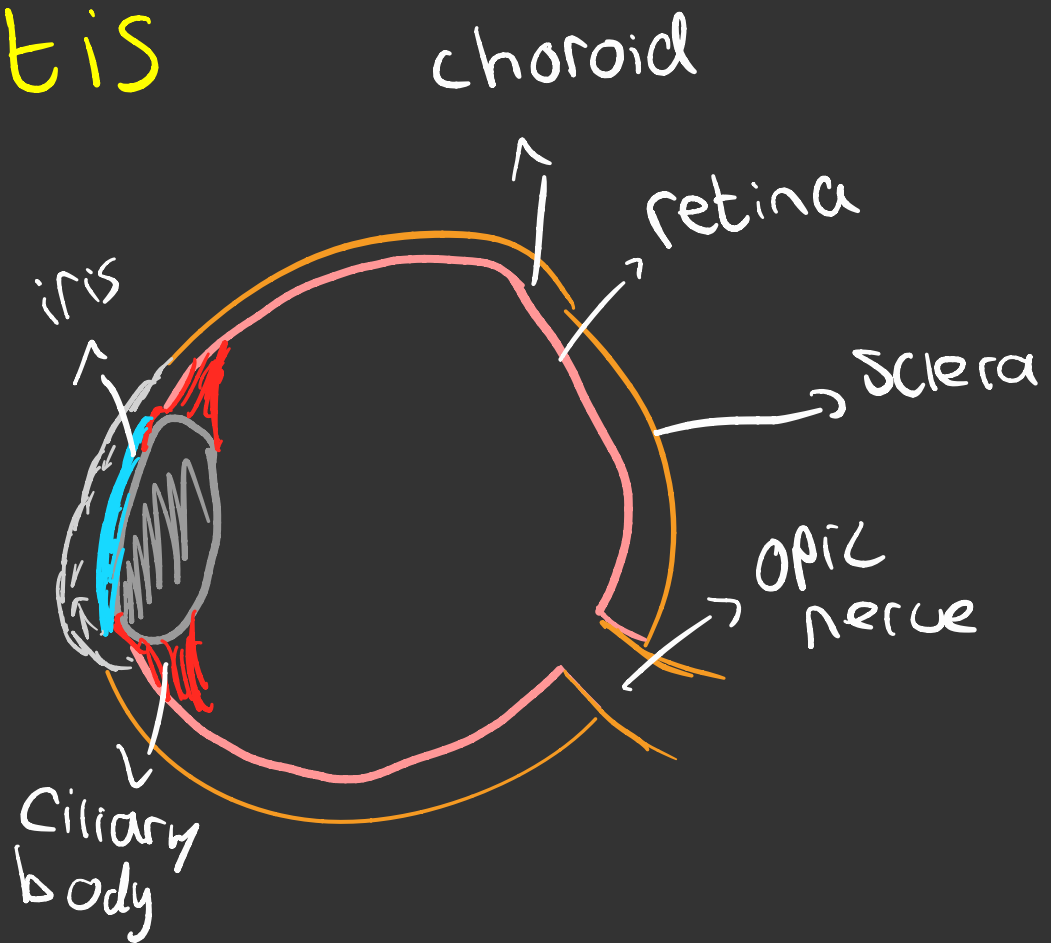 tis
choroid
retina
iris
sclera
opic
nerve
Ciliary
body